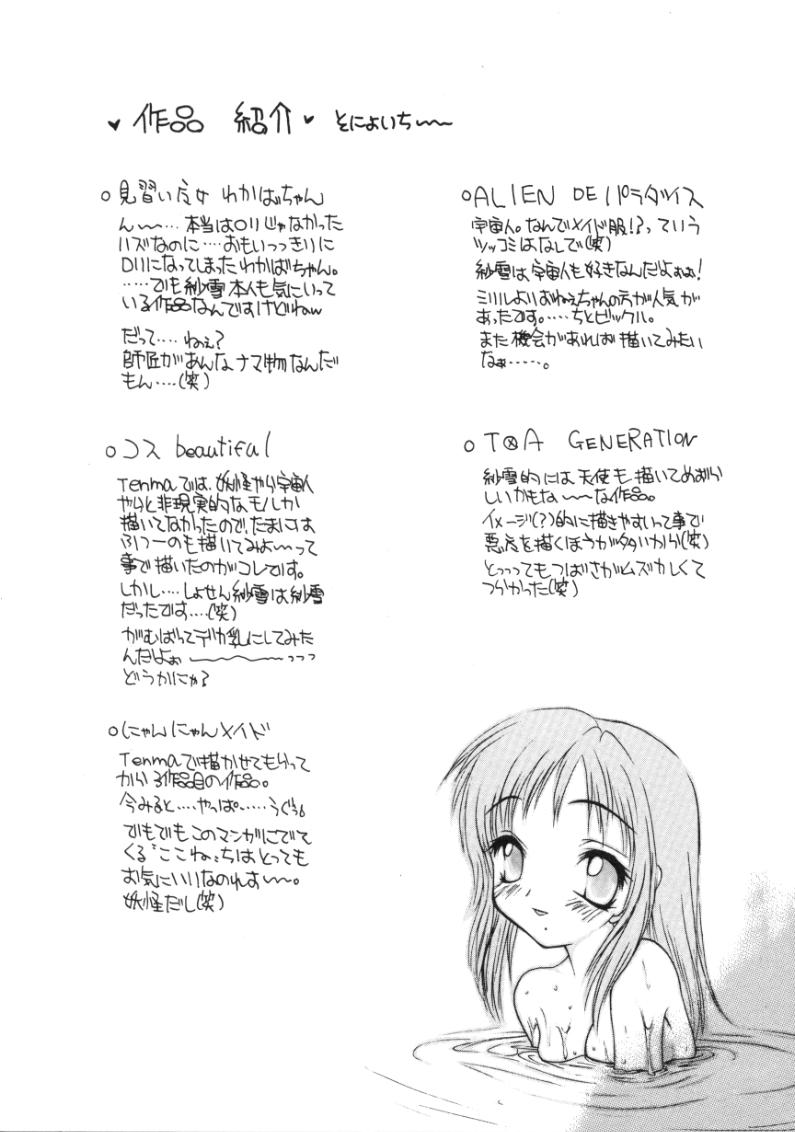 ♥ 作品 紹介 ♥ そにょいち〜〜
○見習い魔女 わかばちゃん
ん〜〜…. 本当はロリじゃなかった
ハズなのに….おもいっっきりに
ロリになってしまったわかばちゃん。
…..でも紗雪本人も気にいって
いる作品なんですけどねw
だって…. ねぇ?
師匠があんなナマ物なんだ
もん….(笑)
○コス beautiful
Tenmaでは、妖怪やら宇宙人
やらと非現実的なモノしか
描いてなかったので、たまには
ふつーのも描いてみよ〜って
事で描いたのがコレです。
しかし….しょせん紗雪は紗雪
だったです….(笑)
がむばってデカ乳にしてみた
んだよぉ 〜〜〜〜っっっ
どうかにゃ?
○にゃんにゃんメイド
Tenmaで描かせてもらって
から3作品目の作品。
今みると….やっぱ……うぐぅ。
でもでもこのマンガにでて
くる"ここね"ちはとっても
お気にいりなのれす〜〜。
妖怪だし(笑)
○ALIEN DEパラダイス
宇宙人。なんでメイド服!?っていう
ツッコミはなしで(笑)
紗雪は宇宙人も好きなんだよぉぉ!
ミリルよりおねぇちゃんの方が人気が
あったです。…..ちとビックル。
また機会があれば描いてみたい
なぁ……。
○T⊗A GENERATION
紗雪的には天使も描いてめずら
しいかもな〜〜な作品。
イメージ(?)的に描きやすいって事で
悪魔を描くほうが多いから(笑)
とっっってもつばさがムズカしくて
つらかった(笑)